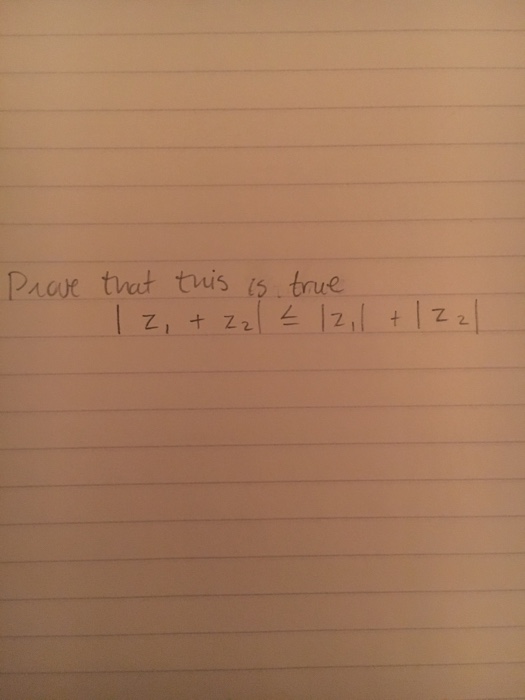 Prove that this is true
| z₁ + z₂| ≤ |z₁| + |z₂|